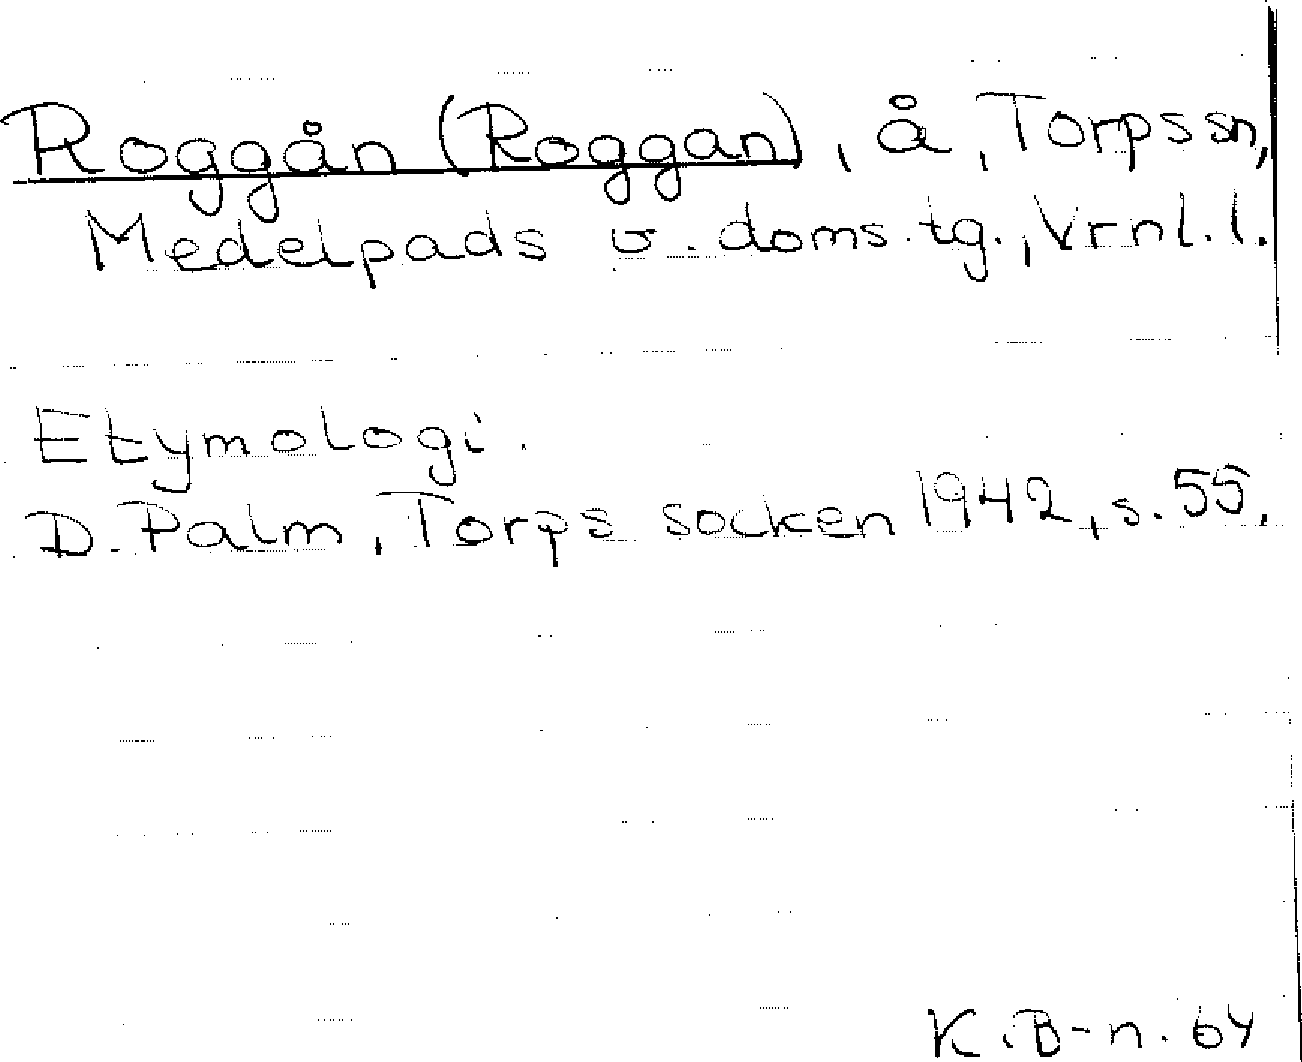 Roggån (Roggan), å, Torps sn,
Medelpads v. doms.tg., Vrnl.l.
Etymologi.
D. Palm, Torps socken 1942, s. 55.
K.B-n. 64